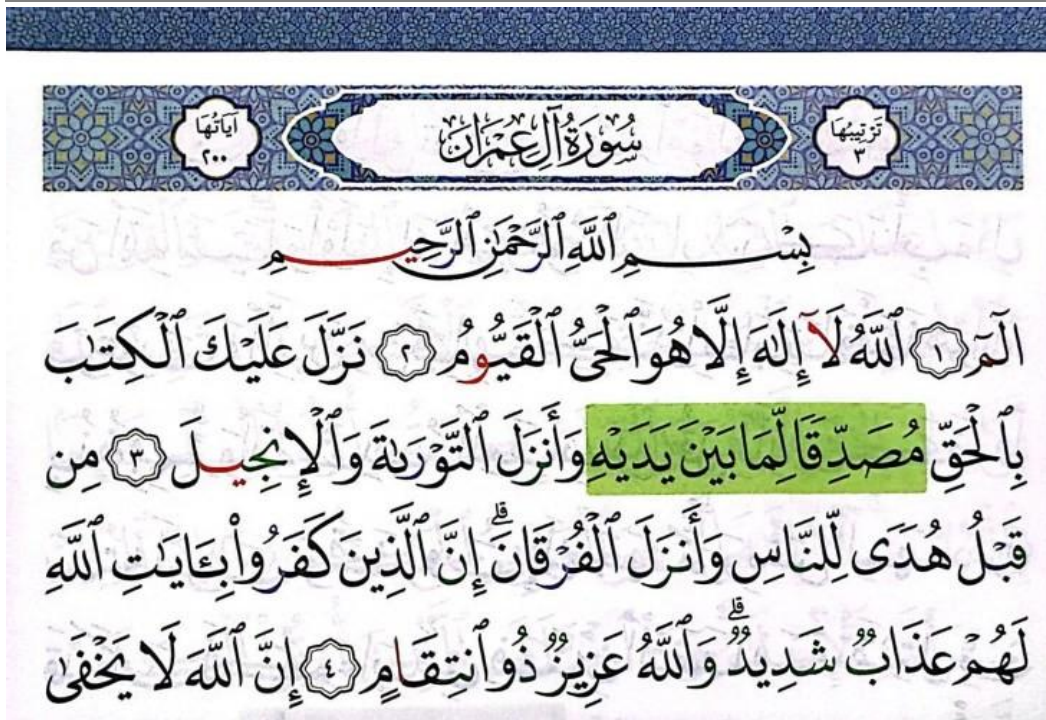 تَرْتِيبُهَا ٣
سُورَةُ آلِ عِمْرَانَ
آيَاتُهَا ٢٠٠
بِسْمِ ٱللَّهِ ٱلرَّحْمَٰنِ ٱلرَّحِيمِ
الٓمٓ ١ ٱللَّهُ لَآ إِلَٰهَ إِلَّا هُوَ ٱلْحَىُّ ٱلْقَيُّومُ ٢ نَزَّلَ عَلَيْكَ ٱلْكِتَٰبَ
بِٱلْحَقِّ مُصَدِّقًا لِّمَا بَيْنَ يَدَيْهِ وَأَنزَلَ ٱلتَّوْرَىٰةَ وَٱلْإِنجِيلَ ٣ مِن
قَبْلُ هُدًى لِّلنَّاسِ وَأَنزَلَ ٱلْفُرْقَانَ ۗ إِنَّ ٱلَّذِينَ كَفَرُوا۟ بِـَٔايَٰتِ ٱللَّهِ
لَهُمْ عَذَابٌ شَدِيدٌ ۗ وَٱللَّهُ عَزِيزٌ ذُو ٱنتِقَامٍ ٤ إِنَّ ٱللَّهَ لَا يَخْفَىٰ